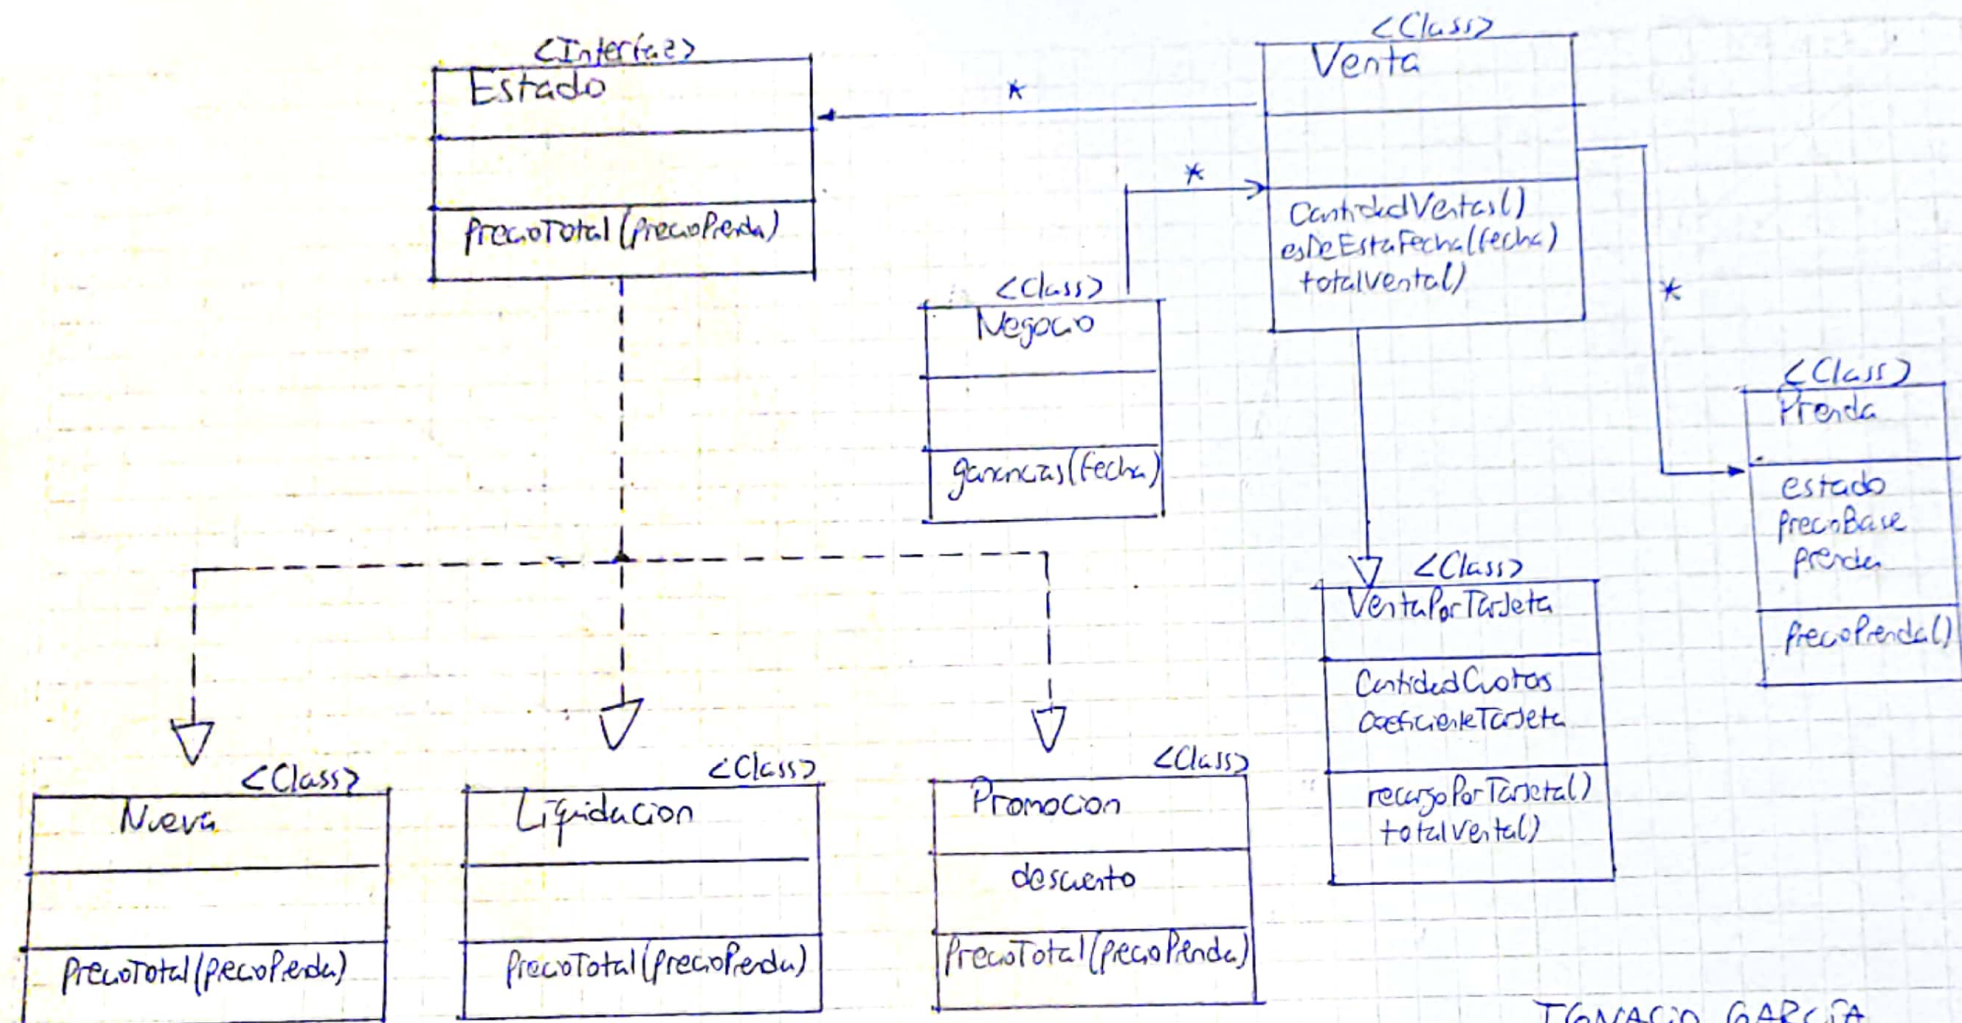 <Interfaz>
Estado
precioTotal(precioPrenda)
*
<Class>
Venta
CantidadVentas()
esDeEstaFecha(fecha)
totalVenta()
*
*
<Class>
Negocio
ganancias(fecha)
<Class>
Prenda
estado
precioBase
prenda
precioPrenda()
<Class>
VentaPorTarjeta
CantidadCuotas
coeficienteTarjeta
recargoPorTarjeta()
totalVenta()
<Class>
Nueva
precioTotal(precioPrenda)
<Class>
Liquidacion
precioTotal(precioPrenda)
<Class>
Promocion
descuento
precioTotal(precioPrenda)
IGNACIO GARCIA